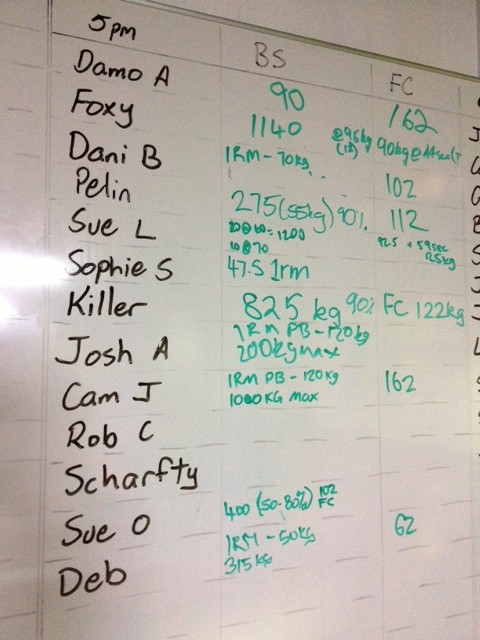 5pm BS FC
Damo A 90 162
Foxy 1140 @96kg 90kg@
Dani B 1RM - 70kg
Pelin 102
275(55kg) 90% 112
Sue L 20@60= 1200 92.5 + 59sec
10@70 25kg
Sophie S 47.5 1rm
Killer 825 kg 90% FC 122kg
1RM PB - 120kg
Josh A 200kg max
Cam J 1RM PB - 120kg 162
1000KG max
Rob C
Scharfty
400 (50-80%) 102 FC
Sue O 1RM - 50kg 62
Deb 315kg